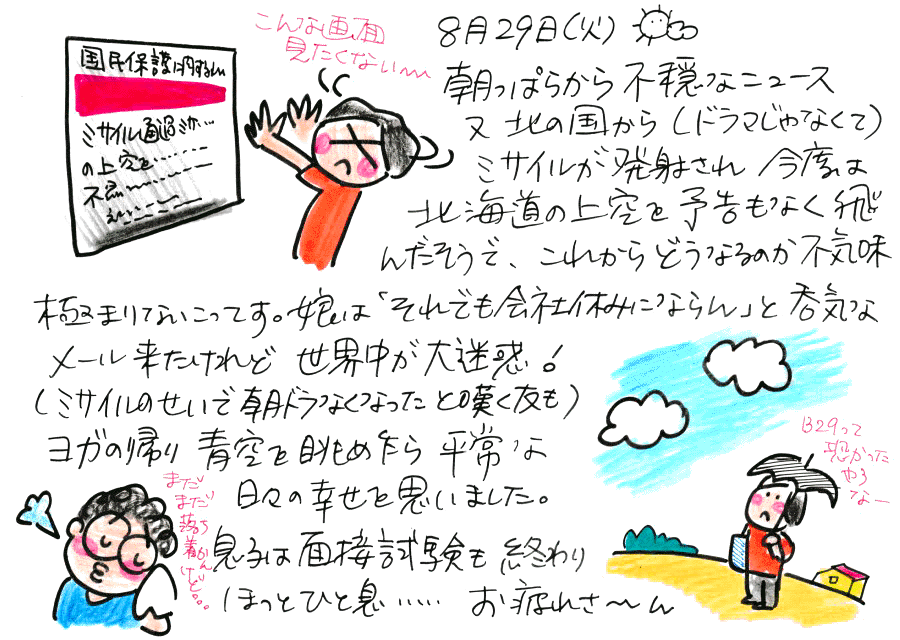 8月29日(火)
朝っぱらから不穏なニュース
又北の国から(ドラマじゃなくて)
ミサイルが発射され今度は
北海道の上空を予告もなく飛
んだそうで、これからどうなるのか不気味
極まりないこってす。娘は「それでも会社休みにならん」と呑気な
メール来たけれど 世界中が大迷惑!
(ミサイルのせいで朝ドラなくなったと嘆く友も)
ヨガの帰り 青空を眺めたら 平常な
日々の幸せを思いました。
息子は面接試験も終わり
ほっとひと息…… お疲れさ〜ん
こんな画面
見たくない〜
国民保護に関する
ミサイル通過ミサ…
の上空を……
不
B29って
恐かった
やろ
なー
まだ
まだ
落ち
着かん
けど。。